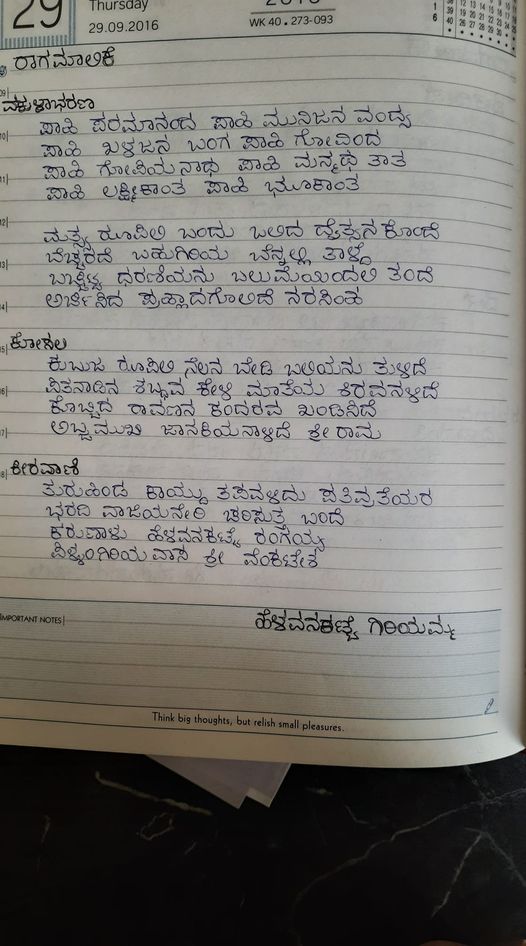 29 Thursday
29.09.2016
WK 40 • 273-093
ರಾಗಮಾಲಿಕೆ
ವಕುಳಾಭರಣ
ಪಾಹಿ ಪರಮಾನಂದ ಪಾಹಿ ಮುನಿಜನ ವಂದ್ಯ
ಪಾಹಿ ಖಳಜನ ಬಂಗ ಪಾಹಿ ಗೋವಿಂದ
ಪಾಹಿ ಗೋಪಿಯನಾಥ ಪಾಹಿ ಮನ್ಮಥ ತಾತ
ಪಾಹಿ ಲಕ್ಷ್ಮೀಕಾಂತ ಪಾಹಿ ಭೂಕಾಂತ
ಮತ್ಸ್ಯ ರೂಪಿಲಿ ಬಂದು ಬಲಿದ ದೈತ್ಯನ ಕೊಂದೆ
ಬೆಚ್ಚರದೆ ಬಹುಗಿರಿಯ ಬೆನ್ನಲ್ಲಿ ತಾಳ್ದೆ
ಧರಣಿಯನು ಬಲುಮೆಯಿಂದಲಿ ತಂದೆ
ಪ್ರಹ್ಲಾದಗೊಲಿದೆ ನರಸಿಂಹ
ಕೋಸಲ
ಕುಬುಜ ರೂಪಿಲಿ ನೆಲನ ಬೇಡಿ ಬಲಿಯನು ತುಳಿದೆ
ಪಿತನಾಡಿನ ಶಬ್ಧವ ಕೇಳಿ ಮಾತೆಯ ಶಿರವನಳಿದೆ
ಕೊಬ್ಬಿದ ರಾವಣನ ಕಂದರವ ಖಂಡಿಸಿದೆ
ಅಬ್ಜಮುಖಿ ಜಾನಕಿಯನಾಳಿದೆ ಶ್ರೀರಾಮ
ಕೀರವಾಣಿ
ತುರುಹಿಂಡ ಕಾಯ್ದು ತಪವಳಿದು ಪತಿವ್ರತೆಯರ
ಭರದಿ ವಾಜಿಯನೇರಿ ಚರಿಸುತ್ತ ಬಂದೆ
ಕರುಣಾಳು ಹೆಳವನಕಟ್ಟೆ ರಂಗಯ್ಯ
ವಾಸ ಶ್ರೀ ವೆಂಕಟೇಶ
ಹೆಳವನಕಟ್ಟೆ ಗಿರಿಯಮ್ಮ
IMPORTANT NOTES
Think big thoughts, but relish small pleasures.